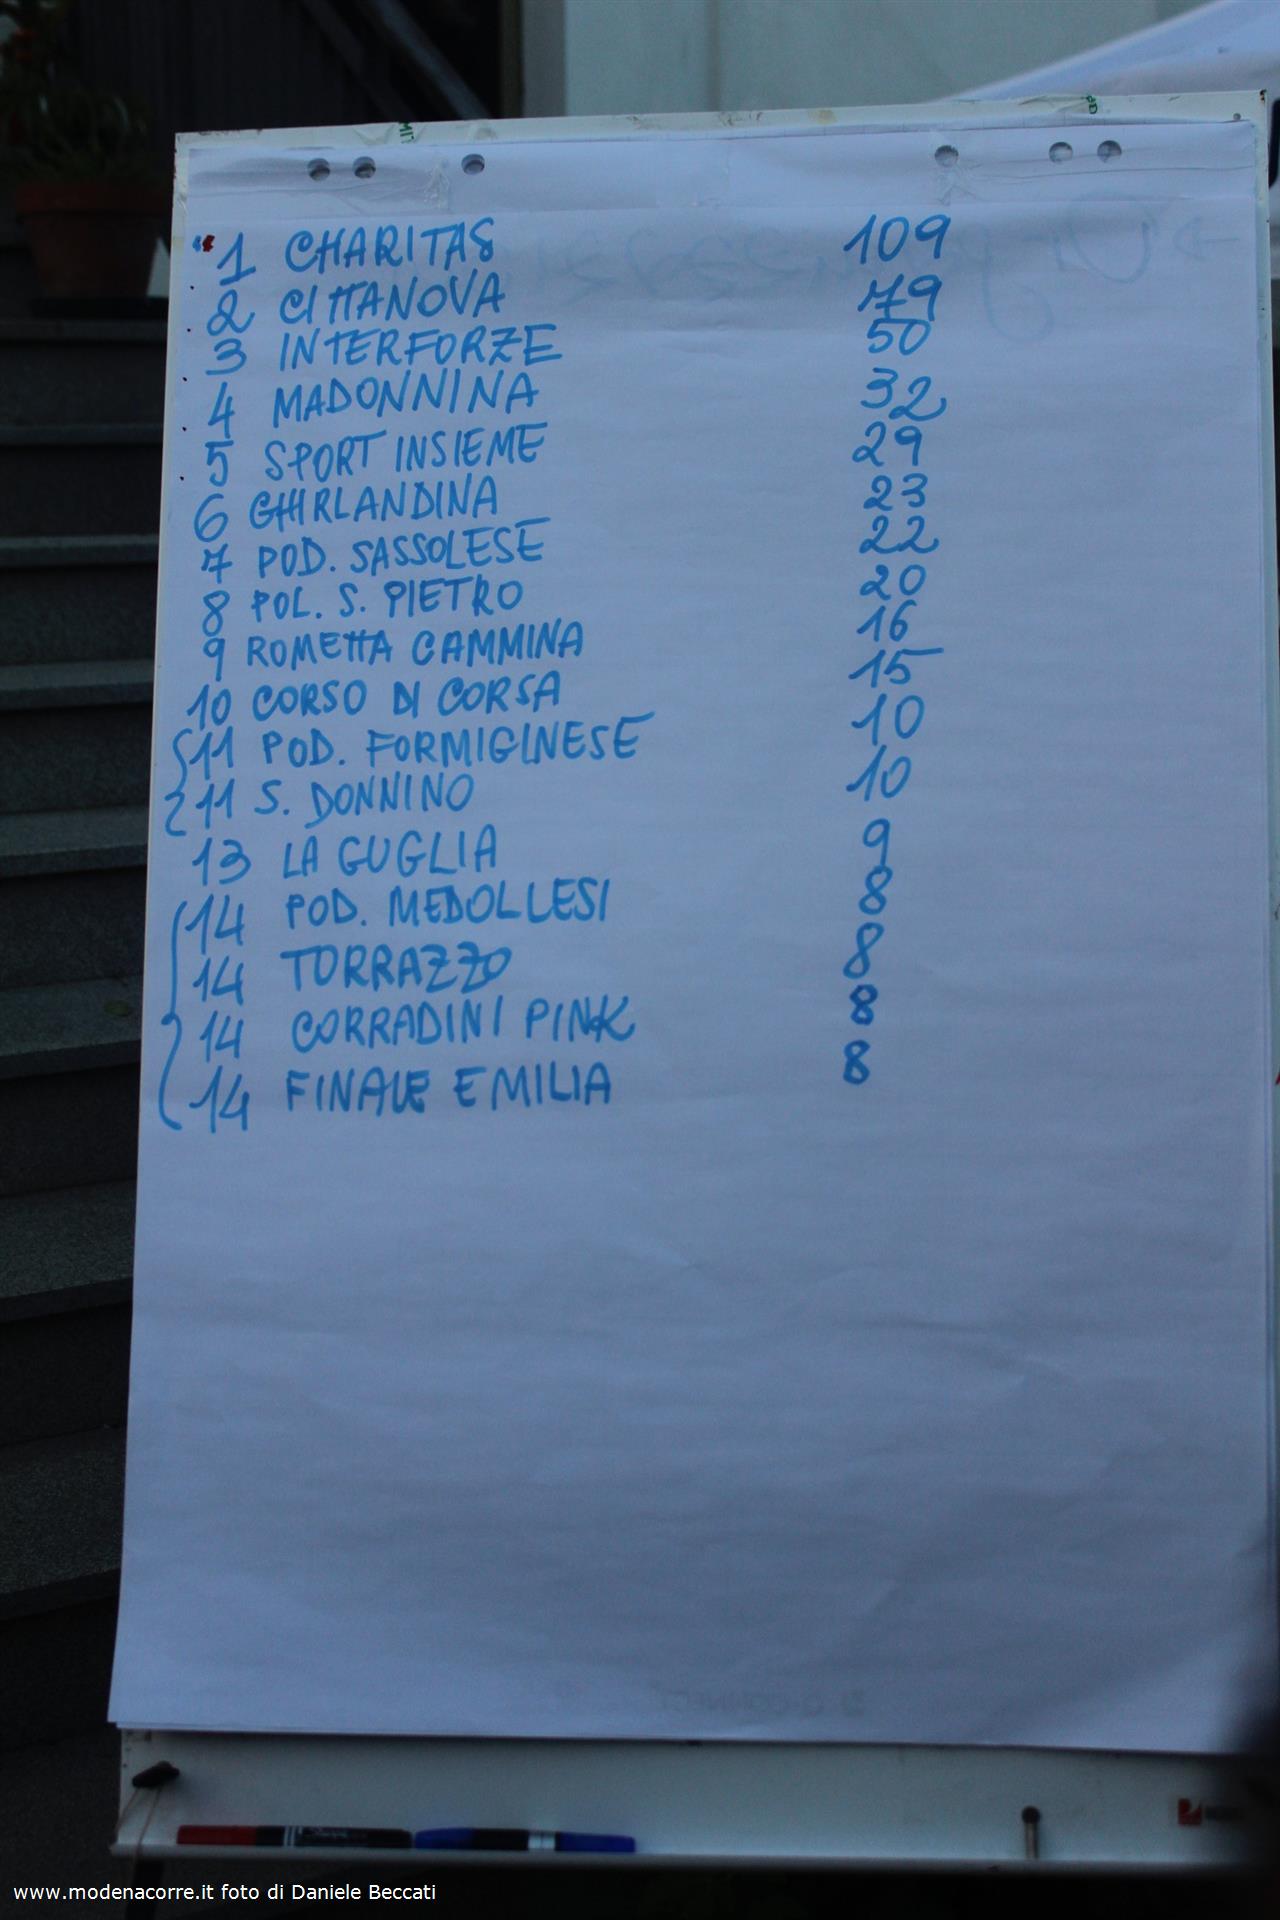 1 CHARITAS 109
2 CITTANOVA 79
3 INTERFORZE 50
4 MADONNINA 32
5 SPORT INSIEME 29
6 GHIRLANDINA 23
7 POD. SASSOLESE 22
8 POL. S. PIETRO 20
9 ROMETTA CAMMINA 16
10 CORSO DI CORSA 15
11 POD. FORMIGINESE 10
11 S. DONNINO 10
13 LA GUGLIA 9
14 POD. MEDOLLESI 8
14 TORRAZZO 8
14 CORRADINI PINK 8
14 FINALE EMILIA 8
www.modenacorre.it foto di Daniele Beccati